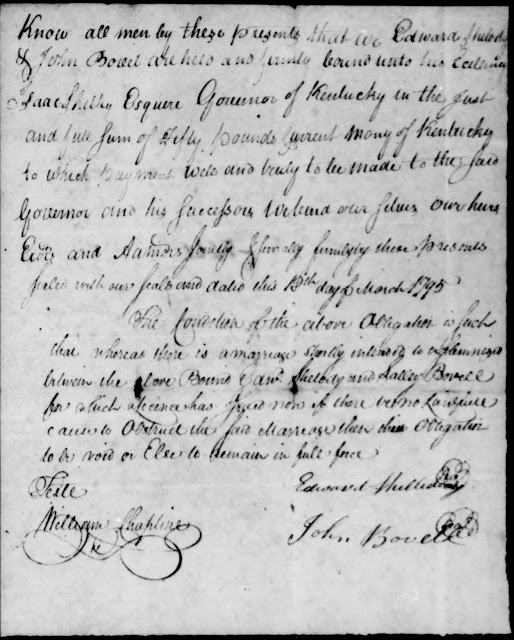 Know all men by these Presents that we Edward
& John Bovel are held and firmly bound unto his Excelency
Isaac Shelby Esquere Governor of Kentucky in the Just
and full Sum of Fifty Pounds Current Mony of Kentucky
to which Payment well and truly to be made to the said
Governor and his Successors we bend our Selves our heirs
and Admrs Jointly & severally firmly by these Presents
Seeled with our Seals and dated this 15th day of March 1795
The Condition of the above Obligation is Such
that whereas there is a marriage shortly intended to be
between the above Bound Edwd and Salley Bovell
for which a licence has Issued now if there be no Lawfull
cause to Obstruct the said Marriage then this Obligation
to be void or Else to remain in full force
Teste Edward
William Chapline John Bovell